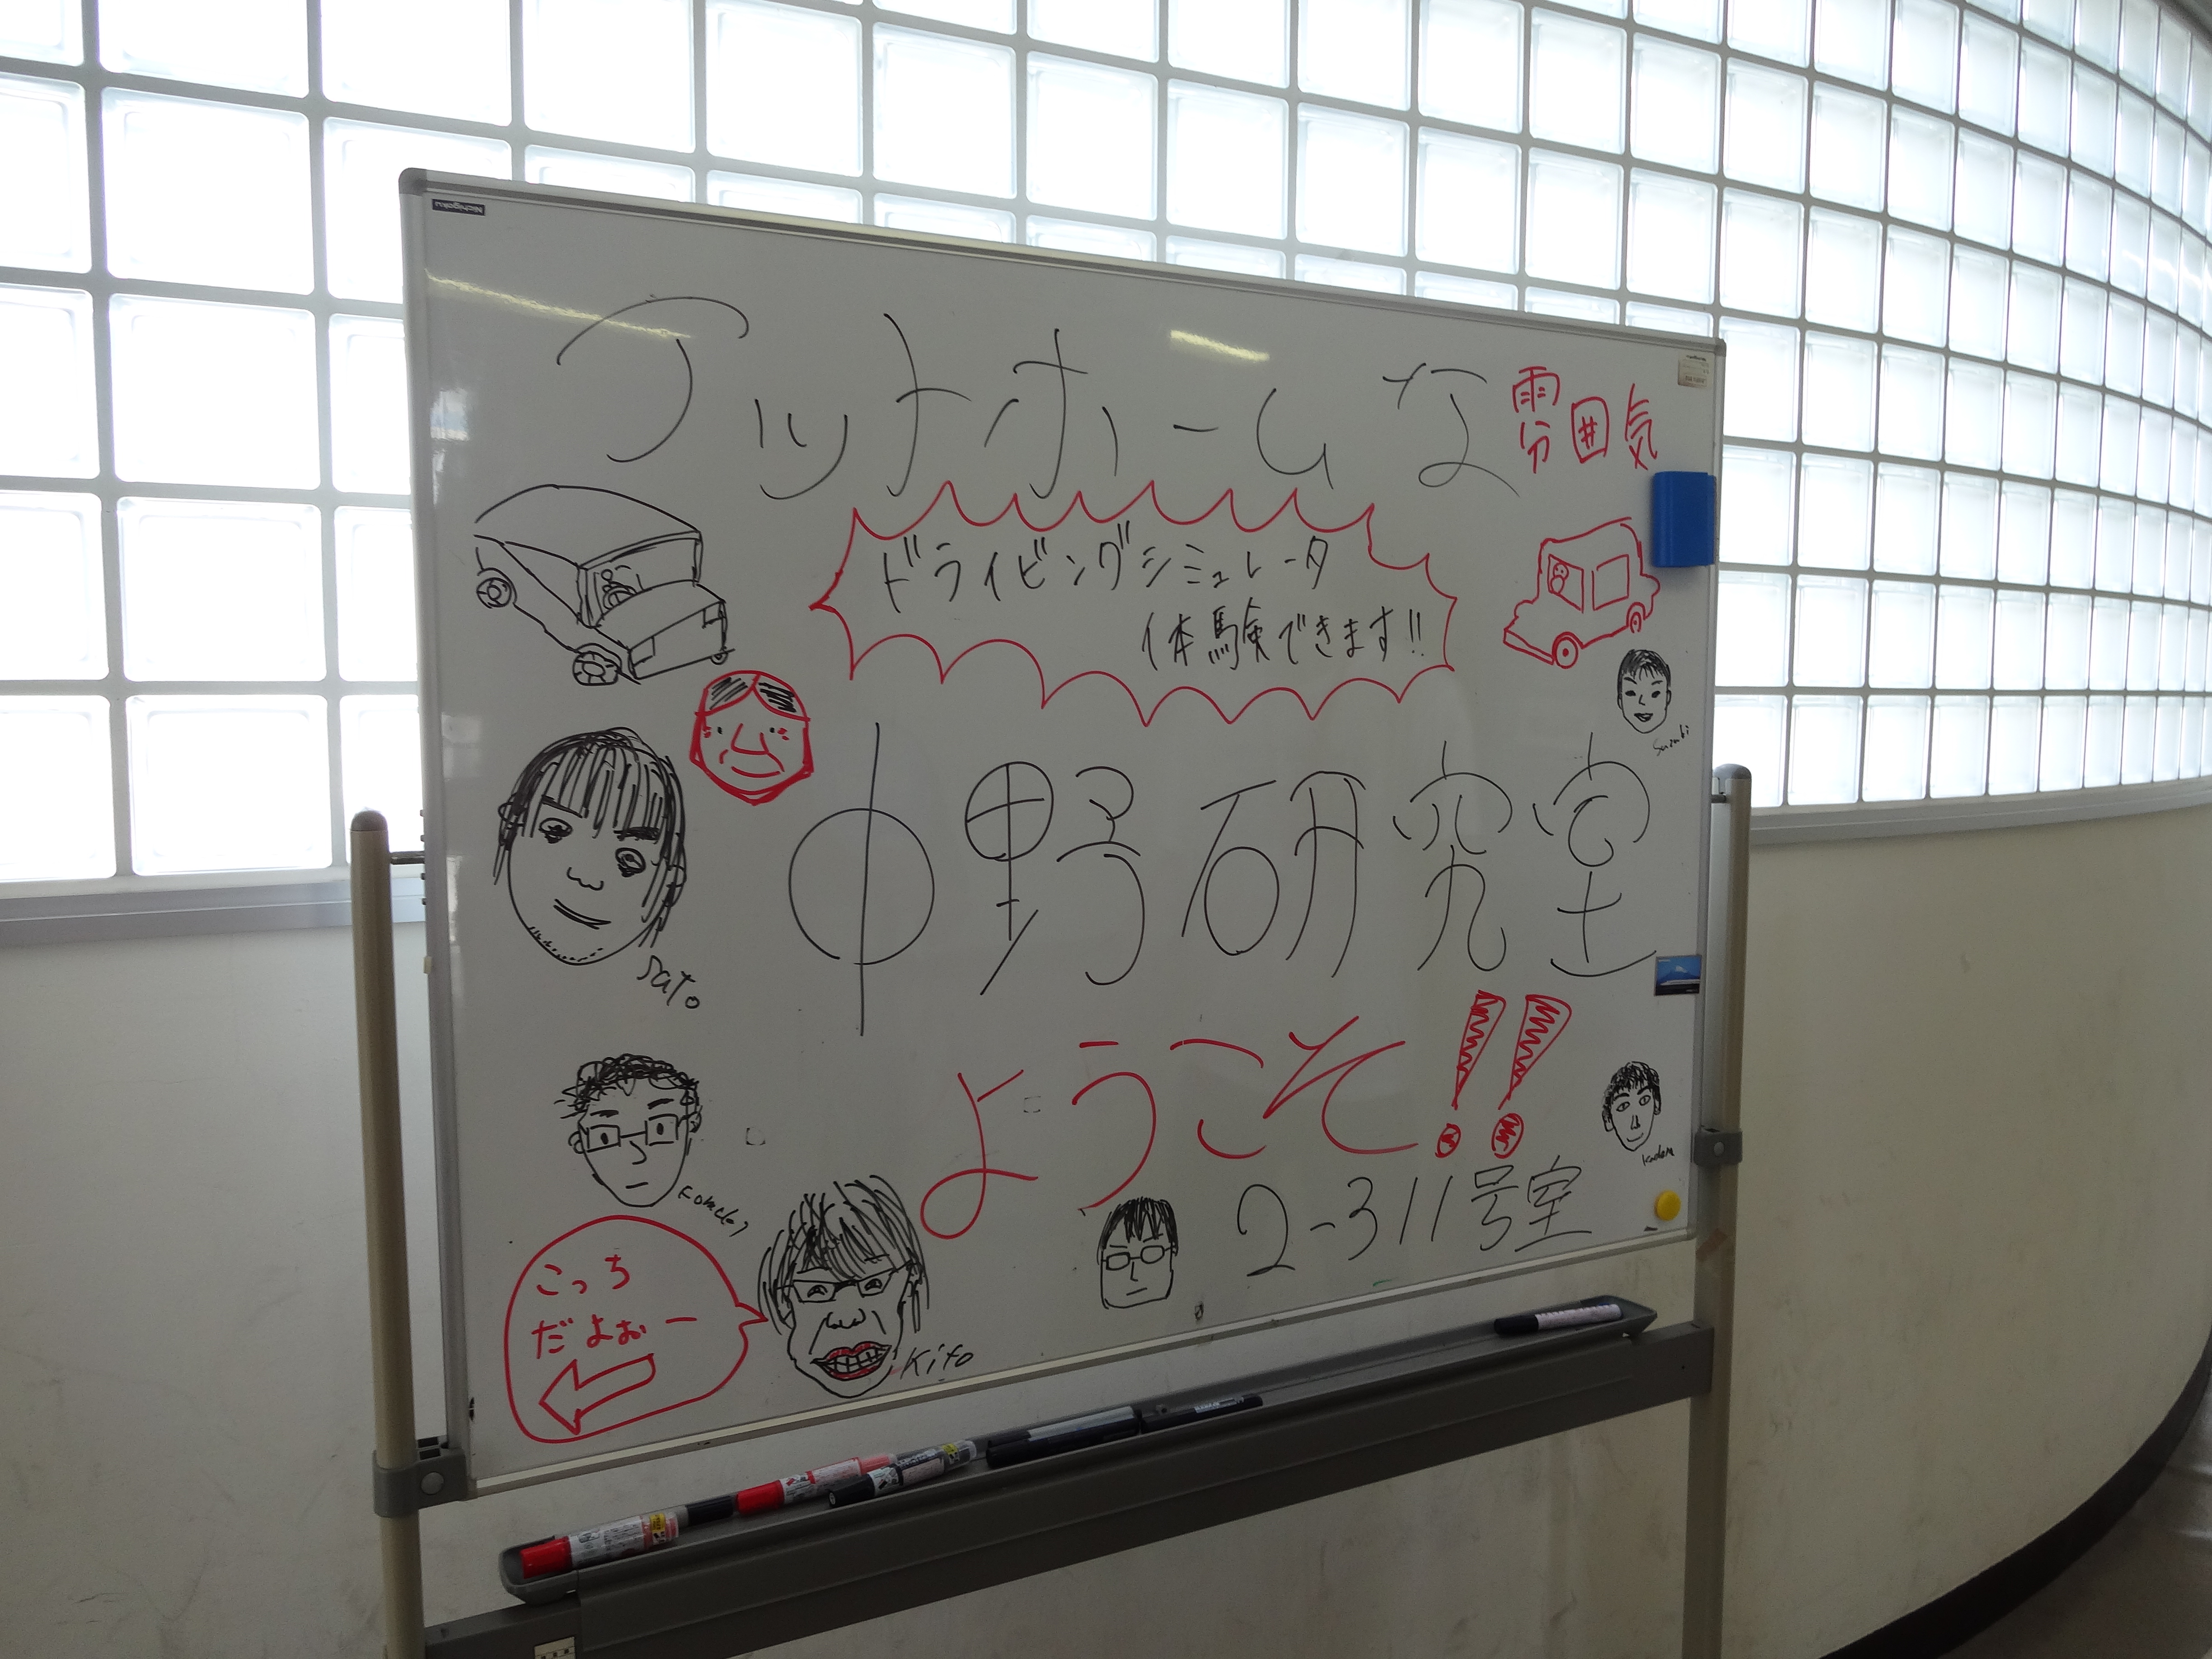 アットホームな雰囲気
ドライビングシミュレータ
体験できます!!
Suzuki
中野研究室
Sato
ようこそ!!
2-311号室
こっち
だよぉー
Kito
Nichigaku